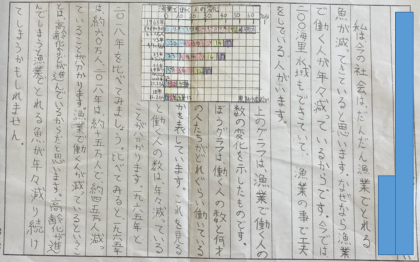 私は今の社会は、だんだん漁業でとれる
魚が減ってきていると思います。なぜなら漁業
で働く人が年々減っているからです。今では
二〇〇海里水域もできていて、漁業の事で工夫
をしている人がいます。
上のグラフは漁業で働く人の
数の変化を示したものです。
ぼうグラフは働く人の数と何才
の人たちがどれぐらい働いている
かを表しています。これを見る
と、働く人の数は年々減っている
ことが分かります。九六五年と
二〇一八年を比べてみましょう。比べてみると一九六五年
は、約六〇万人、二〇一八年は、約十五万人で約四五万人減っ
ていることが分かります。漁業で働く人が減っているという
とは高齢化が進んでいるからだと思います。高齢化が進
んでしまうと漁業でとれる魚が年々減り続け
てしまうかもしれません。